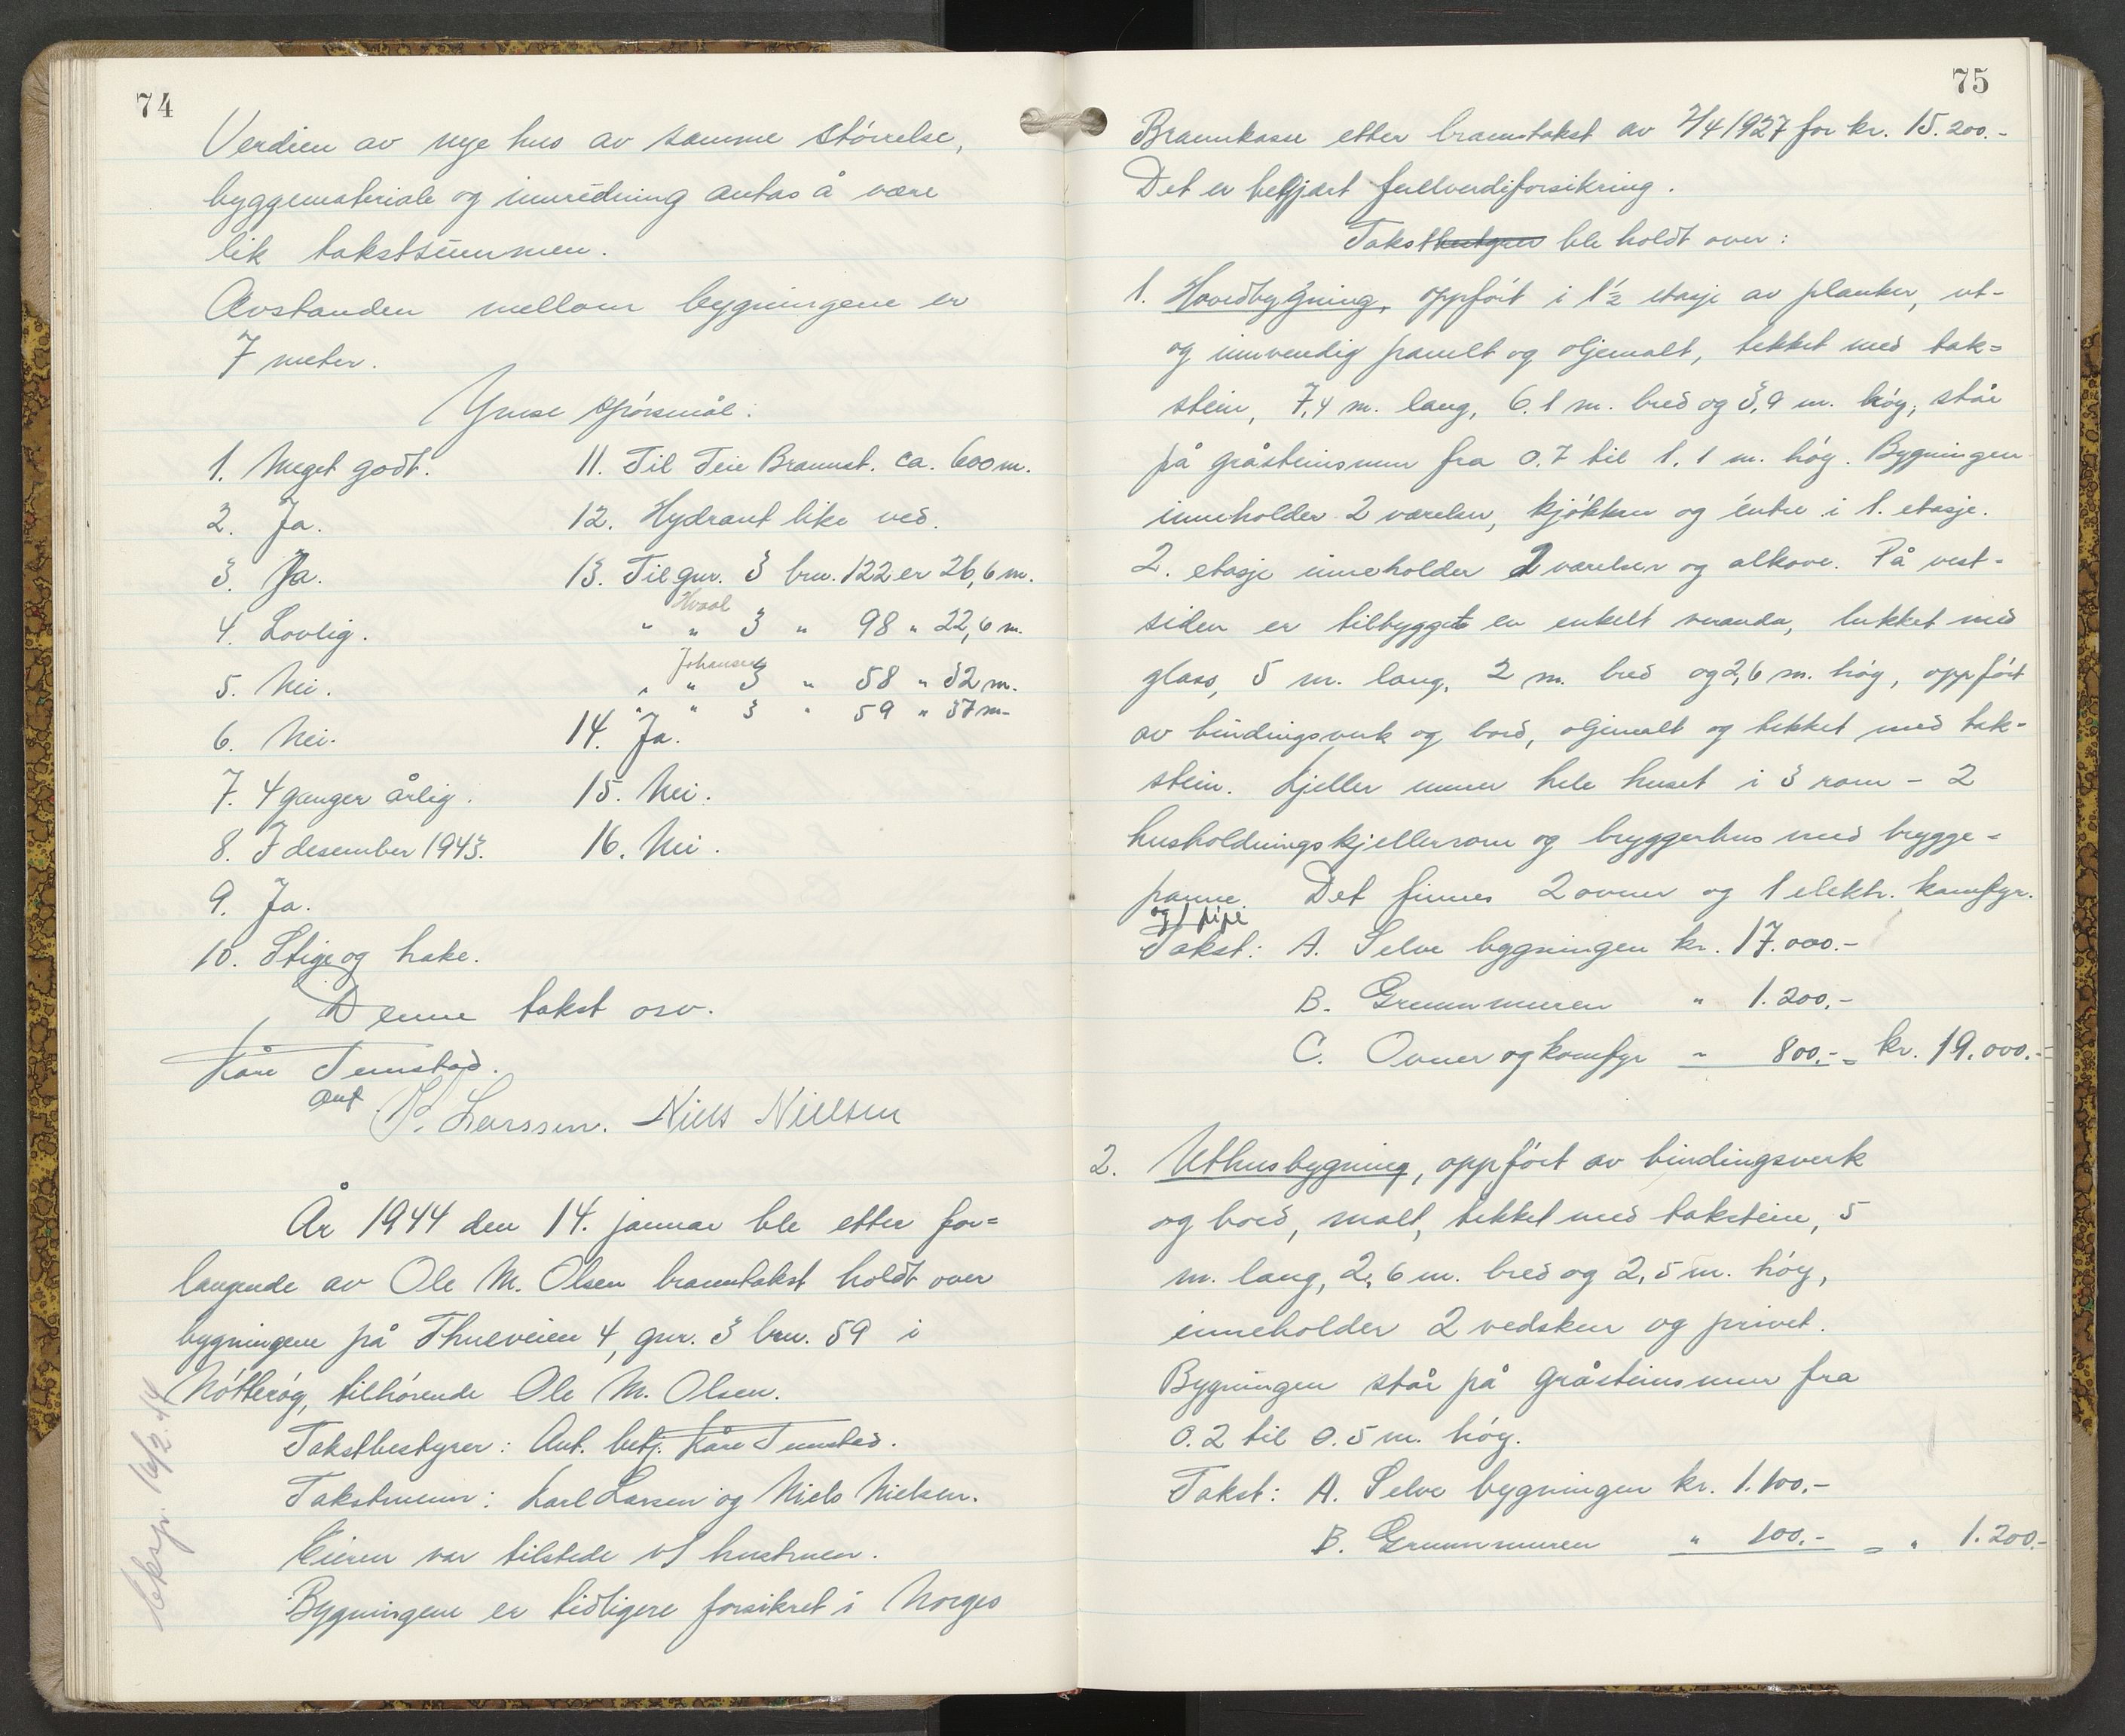 74
Verdien av nye hus av samme størrelse,
byggemateriale og innredning antas å være
lik takstsummen.
Avstanden mellom bygningene er
7 meter.
Ymse spørsmål:
1. Meget godt.
2. Ja.
3. Ja.
4. Lovlig.
5. Nei.
6. Nei.
7. 4 ganger årlig.
8. I desember 1943.
9. Ja.
10. Stige og hake.
11. Til Teie Brannst. ca. 600 m.
12. Hydrant like ved.
13. Til gnr. 3 bnr. 122 er 26,6 m.
Hvaal
" " 3 " 98 " 22,6 m.
Johansen
" " 3 " 58 " 32 m.
" " 3 " 59 " 37 m.
14. Ja.
15. Nei.
16. Nei.
Denne takst osv.
Kåre Temstad.
aut
K. Larssen. Niels Nielsen
År 1944 den 14. januar ble etter for=
langende av Ole M. Olsen branntakst holdt over
bygningene på Thueveien 4, gnr. 3 bnr. 59 i
Nøtterøy, tilhørende Ole M. Olsen.
Takstbestyrer: Aut. betj. Kåre Temstad.
Takstmenn: Karl Larsen og Niels Nielsen.
Eieren var tilstede v/ hustruen.
Bygningene er tidligere forsikret i Norges
Eksp. 16/2.44
75
Brannkasse etter branntakst av 7/4 1927 for kr. 15.200.-
Det er begjært fullverdiforsikring.
Takstbestyrer ble holdt over:
1. Hovedbygning, oppført i 1½ etasje av planker, ut-
og innvendig panelt og oljemalt, tekket med tak=
stein, 7,4 m. lang, 6.1 m. bred og 3,9 m. høy; står
på gråsteinsmur fra 0.7 til 1.1 m. høy. Bygningen
inneholder 2 værelser, kjøkken og éntre i 1. etasje.
2. etasje inneholder 2 værelser og alkove. På vest-
siden er tilbygget en enkelt veranda, lukket med
glass, 5 m. lang, 2 m. bred og 2,6 m. høy, oppført
av bindingsverk og bord, oljemalt og tekket med tak-
stein. Kjeller under hele huset i 3 rom - 2
husholdningskjellerrom og bryggerhus med brygge-
panne. Det finnes 2 ovner og 1 elektr. komfyr.
og 1 pipe
Takst: A. Selve bygningen kr. 17.000.-
B. Grunnmuren " 1.200.-
C. Ovner og komfyr " 800.- = kr. 19.000.-
2. Uthusbygning, oppført av bindingsverk
og bord, malt, tekket med takstein, 5
m. lang, 2,6 m. bred og 2,5 m. høy,
inneholder 2 vedskur og privet.
Bygningen står på gråsteinsmur fra
0.2 til 0.5 m. høy.
Takst: A. Selve bygningen kr. 1.100.-
B. Grunnmuren " 100.- = " 1.200.-